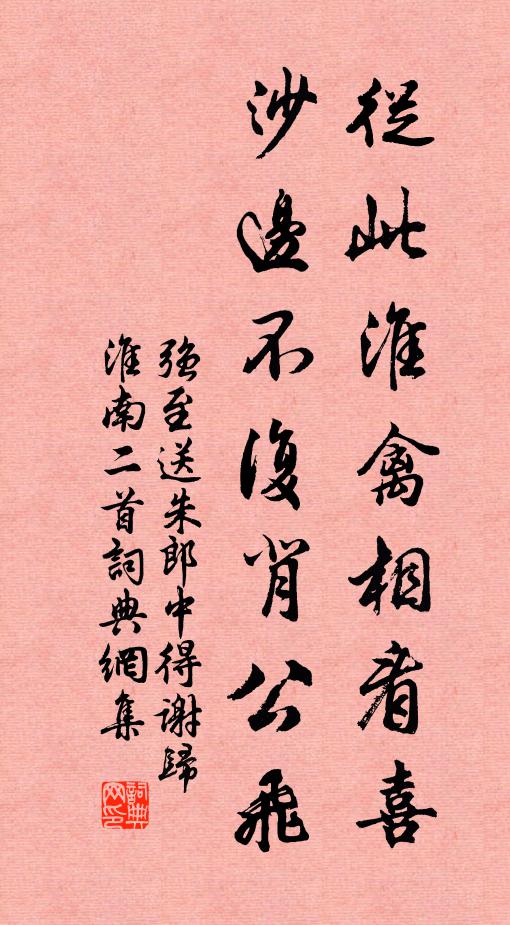 從此淮禽相看喜
沙邊不復背公飛
強至送朱郎中得謝歸
淮南二首詞典網集
詞典网印